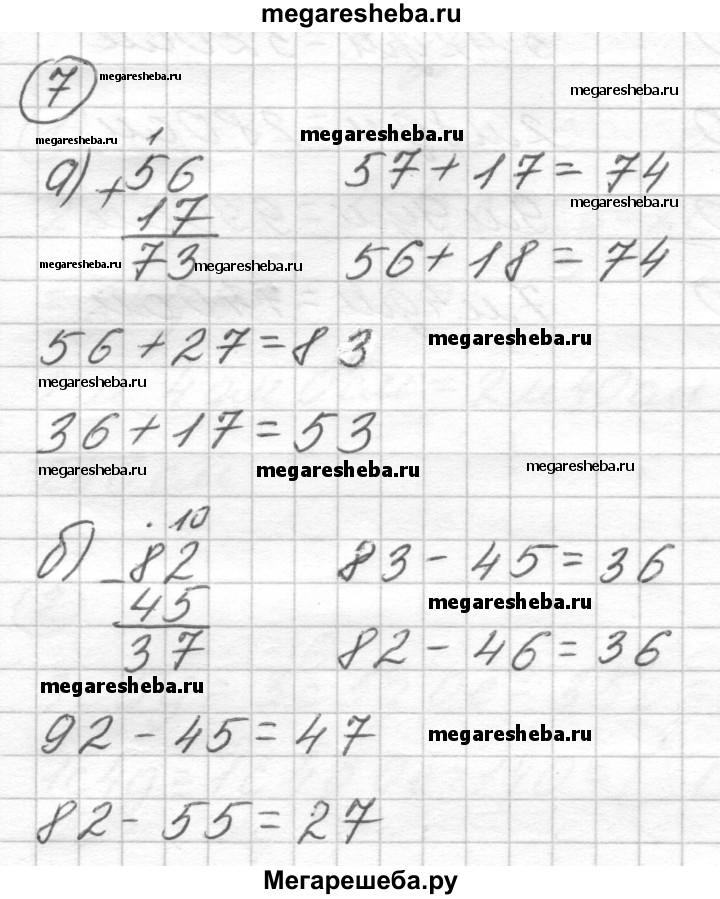 megaresheba.ru
7 megaresheba.ru
megaresheba.ru
megaresheba.ru 1 megaresheba.ru
а) + 56 57 + 17 = 74
17 megaresheba.ru
megaresheba.ru 73 megaresheba.ru 56 + 18 = 74
56 + 27 = 83 megaresheba.ru
megaresheba.ru
36 + 17 = 53
megaresheba.ru megaresheba.ru megaresheba.ru
. 10
б) - 82 83 - 45 = 36
45 megaresheba.ru
37 82 - 46 = 36
megaresheba.ru
92 - 45 = 47 megaresheba.ru
82 - 55 = 27
Мегарешеба.ру